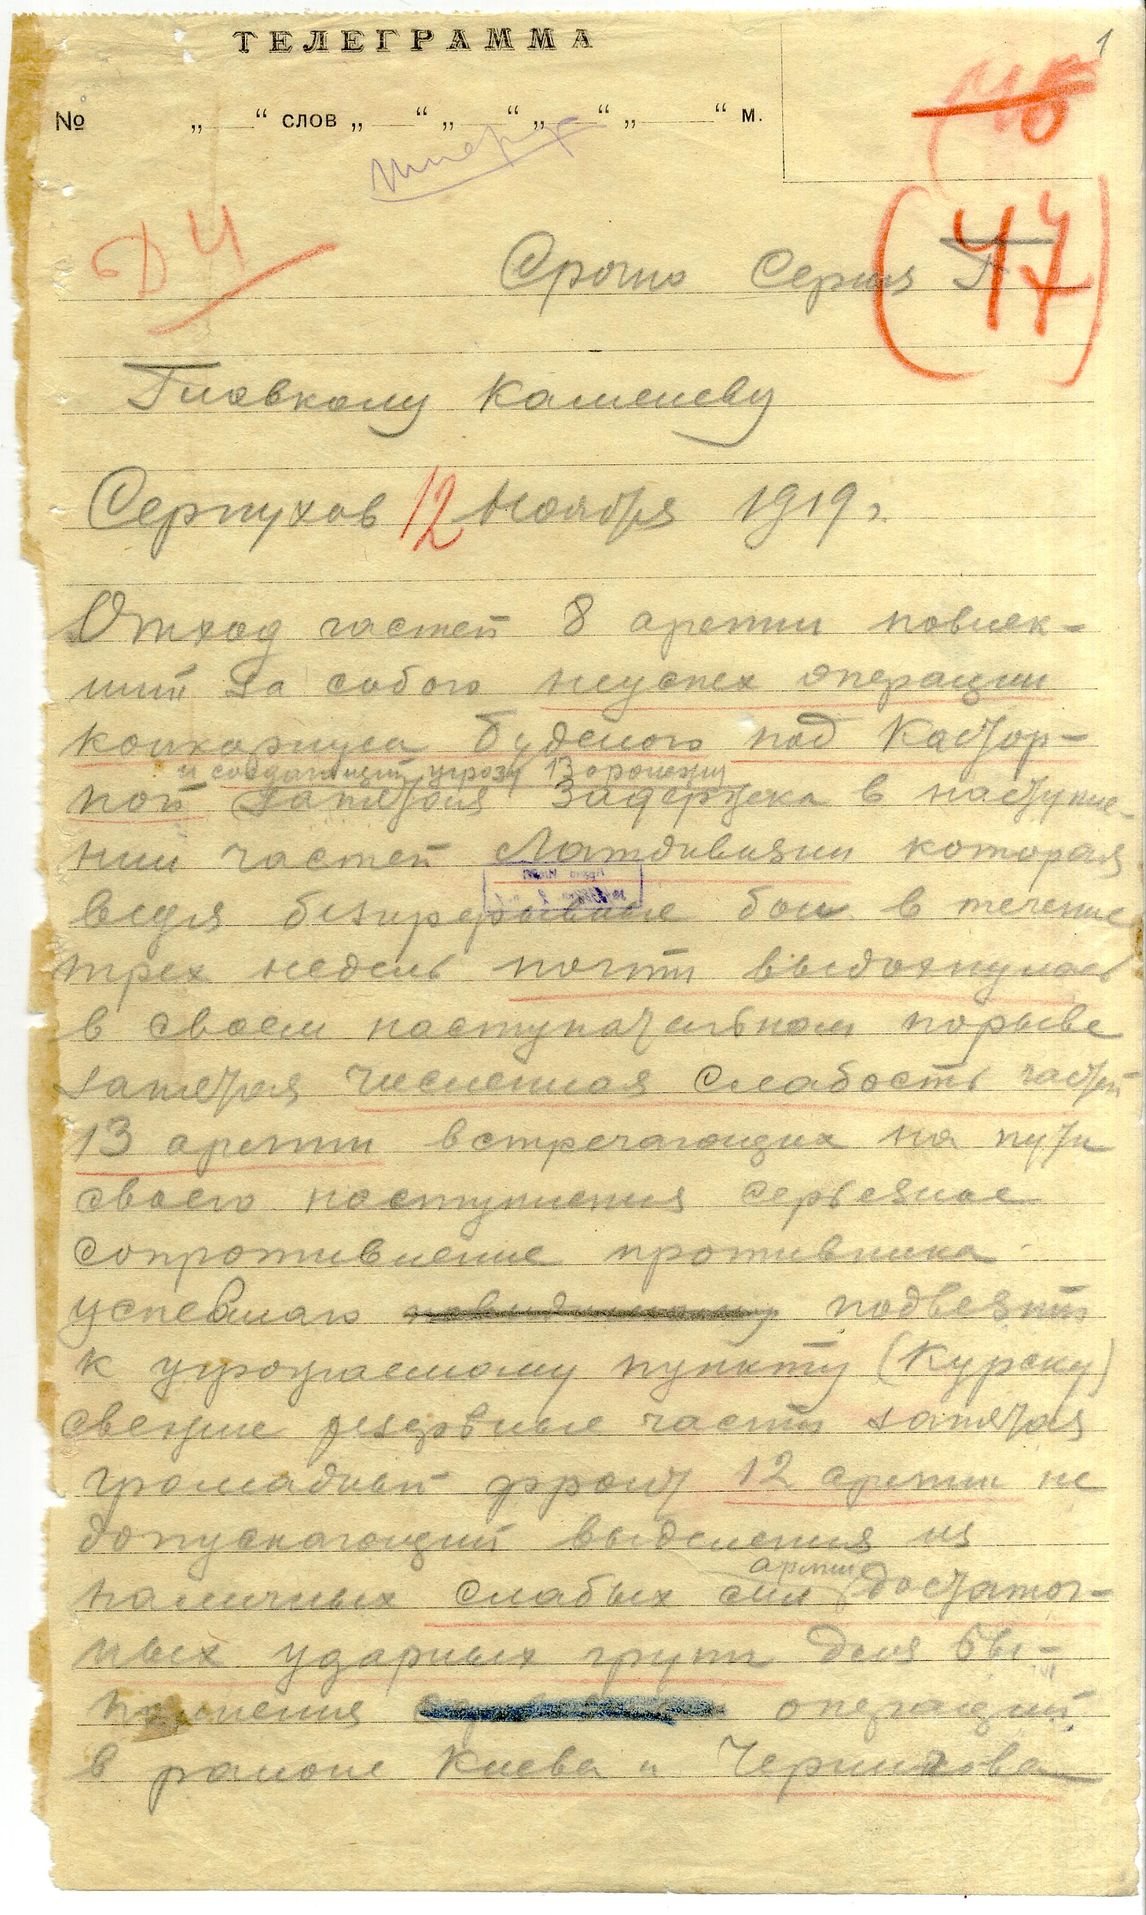 1
ТЕЛЕГРАММА
№ „ “ слов „ “ „ “ „ “ „ “ м.
47
Срочно Серия Г
Главкому Каменеву
Серпухов 12 ноября 1919 г.
Отход частей 8 армии повлек-
ший за собою неуспех операции
конкорпуса Буденого под Кастор-
и создающий угрозу Воронежу
ной запятая задержка в наступле-
нии частей Латдивизии которая
ведя безпрерывные бои в течение
трех недель почти выдохнулась
в своем наступательном порыве
запятая численная слабость частей
13 армии встречающих на пути
своего наступления серьезное
сопротивление противника
успевшаго подвезти
к угрожаемому пункту (Курску)
свежие резервные части запятая
громадный фронт 12 армии не
допускающий выделения из
армии
наличных слабых сил достаточ-
ных ударных групп для вы-
полнения операций
в районе Киева и Чернигова